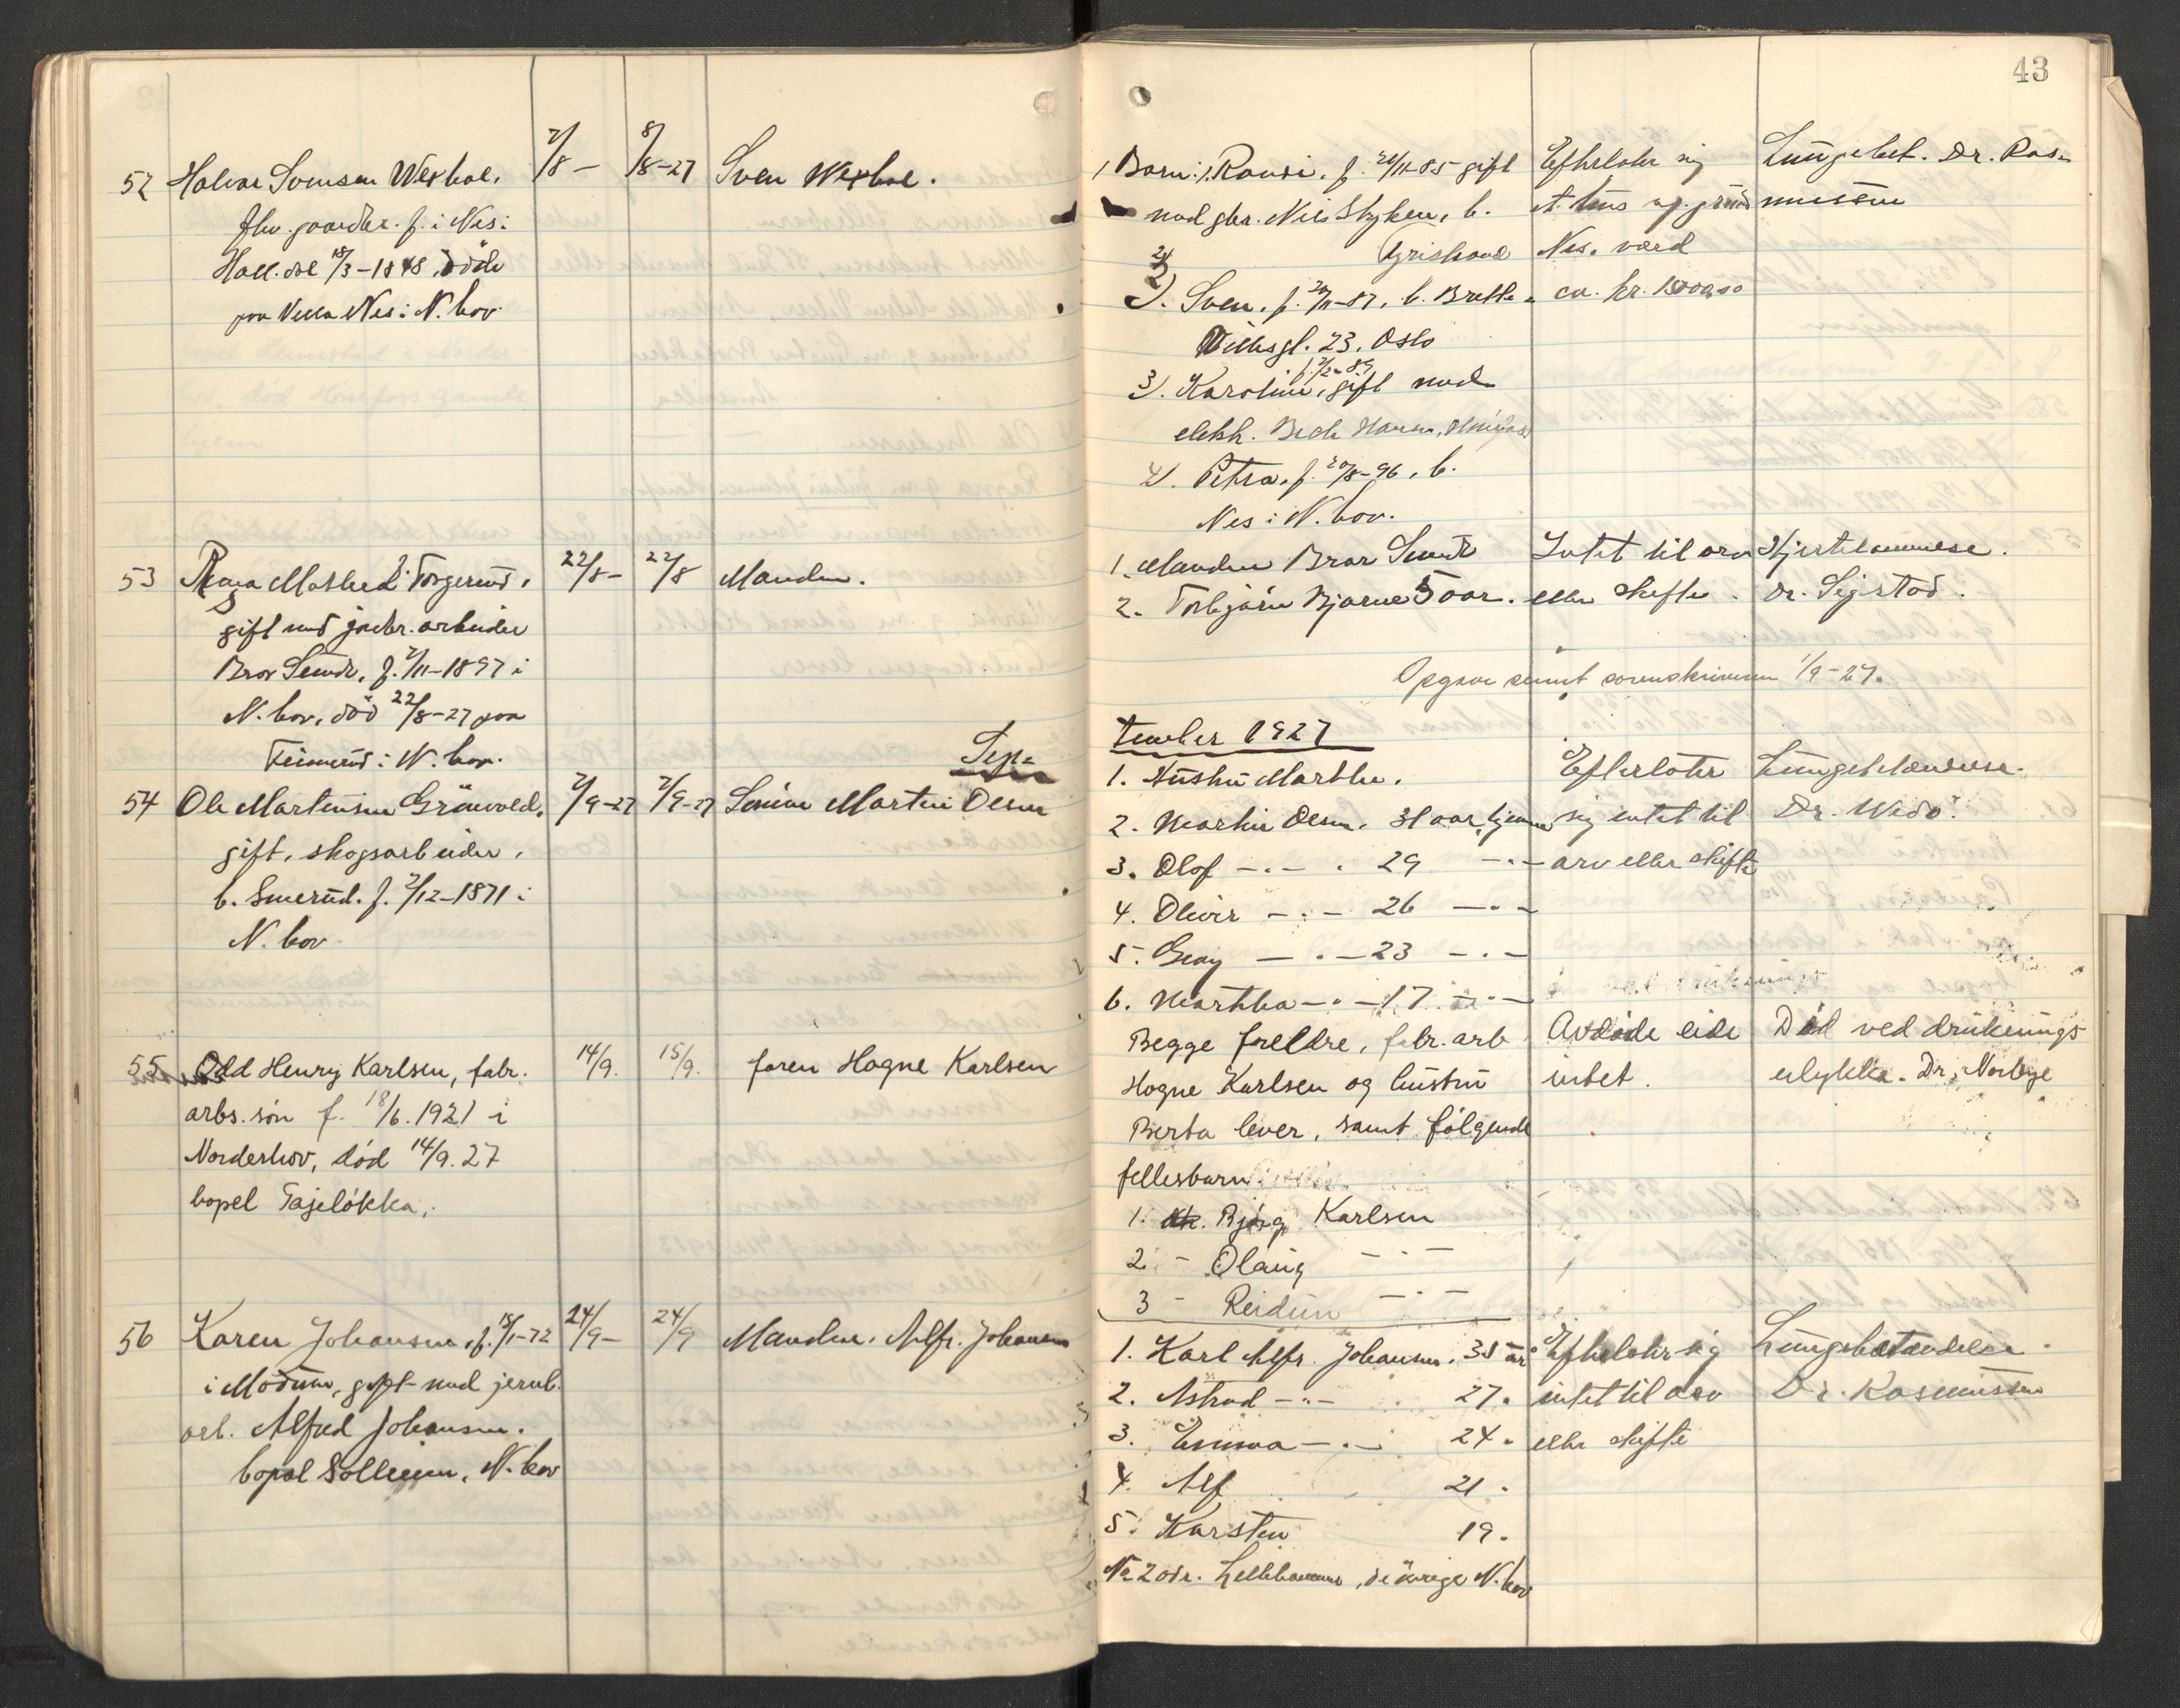 43
52 Halvor Svensen Wexhal. 7/8 – 8/8-27 Sven Wexhal.
fhv. gaardbr. f. i Nes i
Hall.dal 18/3-1848, döde
paa Villa Nes i N.hov.
1 Barn: 1. Randi. f. 26/11-85 gift
med gbr. Nils Skyken, b.
2). Sven. f. 29/11-87. b. Breda
23. Oslo
3). Karoline, gift med
f. 7/2-89
elektr. Bech Hansen,
4). Petra. f. 20/8-96, b.
Nes i N.hov.
Efterlater sig
et hus og grund
Nes. værd
ca. kr.
Lungebet. Dr. Ras-
mussen
53 Ragna Mathea Torgerud, 22/8- 22/8 Manden.
gift med jnbr. arbeider
Bror Sund, f. 7/11-1897 i
N.hov, död 22/8-27 paa
i N.hov.
1. Manden Bror Sund
2. Torbjörn Bjarne 5 aar.
Intet til arv
eller skifte.
Hjertelammelse.
Dr. Sigstad.
Opgave sendt sorenskriveren 1/9-27.
Sep-
tember 1927
54 Ole Martinsen Grönvold, 7/9-27 7/9-27 Martin Olsen
gift, skogsarbeider,
b. Smerud. f. 7/12-1871 i
N.hov
1. Hustru Marthe.
2. Martin Olsen. 31 aar, hjemme
3. Olof –.– . 29 –.–
4. Oliver –.– 26 –.–
5. –.– 23 –.–
6. Martha –.– 17 –.–
Efterlater
sig intet til
arv eller skifte
Lungebetændelse.
Dr. Wido.
55 Odd Henry Karlsen, fabr. 14/9. 15/9. faren Hogne Karlsen
arbs. søn f. 18/6.1921 i
Norderhov, død 14/9.27
bopel Tajeløkka,
Begge foreldre, fabr. arb
Hogne Karlsen og hustru
Berta lever, samt følgende
fellesbarn
1. Bjørg Karlsen
2 - Olaug –.–
3 - Reidun –.–
Avdøde eide
intet.
Død ved druknings
ulykke. Dr. Norbye
56 Karen Johansen, f. 15/1-72 24/9- 24/9 Manden. Alfr. Johansen
i Modum, gift med jernb.
arb. Alfred Johansen.
bopæl Solheim, N.hov
1. Karl Alfr. Johansen. 38 år
2. Astrid –.– 27.
3. Emma –.– 24.
4. Alf 21.
5. Karsten 19.
No 2 adr. Lillehammer, de övrige N.hov
Efterlater sig
intet til arv
eller skifte
Lungebetændelse.
Dr. Rasmussen